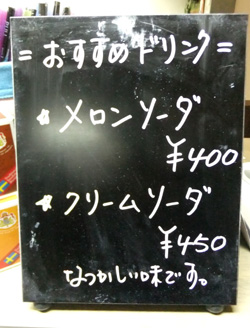 = おすすめドリンク =
* メロンソーダ
¥400
* クリームソーダ
¥450
なつかしい味です。